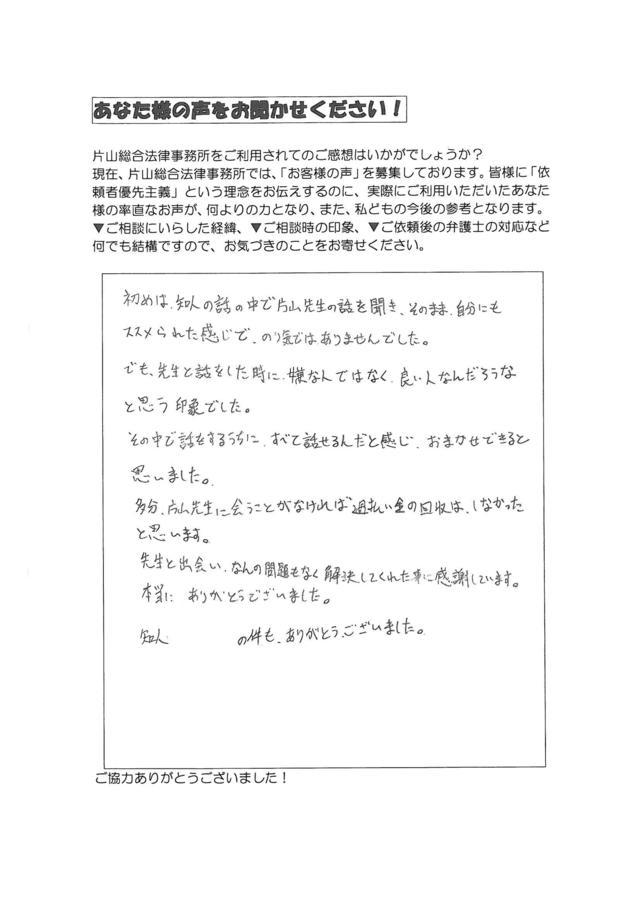 あなた様の声をお聞かせください！
片山総合法律事務所をご利用されてのご感想はいかがでしょうか？
現在、片山総合法律事務所では、「お客様の声」を募集しております。皆様に「依
頼者優先主義」という理念をお伝えするのに、実際にご利用いただいたあなた
様の率直なお声が、何よりの力となり、また、私どもの今後の参考となります。
▼ご相談にいらした経緯、▼ご相談時の印象、▼ご依頼後の弁護士の対応など
何でも結構ですので、お気づきのことをお寄せください。
初めは、知人の話の中で片山先生の話を聞き、そのまま、自分にも
ススメられた感じで、のり気ではありませんでした。
でも、先生と話をした時に、嫌な人ではなく、良い人なんだろうな
と思う印象でした。
その中で話をするうちに、すべて話せるんだと感じ、おまかせできると
思いました。
多分、片山先生に会うことがなければ過払い金の回収は、しなかった
と思います。
先生と出会い、なんの問題もなく解決してくれた事に感謝しています。
本当に ありがとうございました。
知人 の件も、ありがとうございました。
ご協力ありがとうございました！